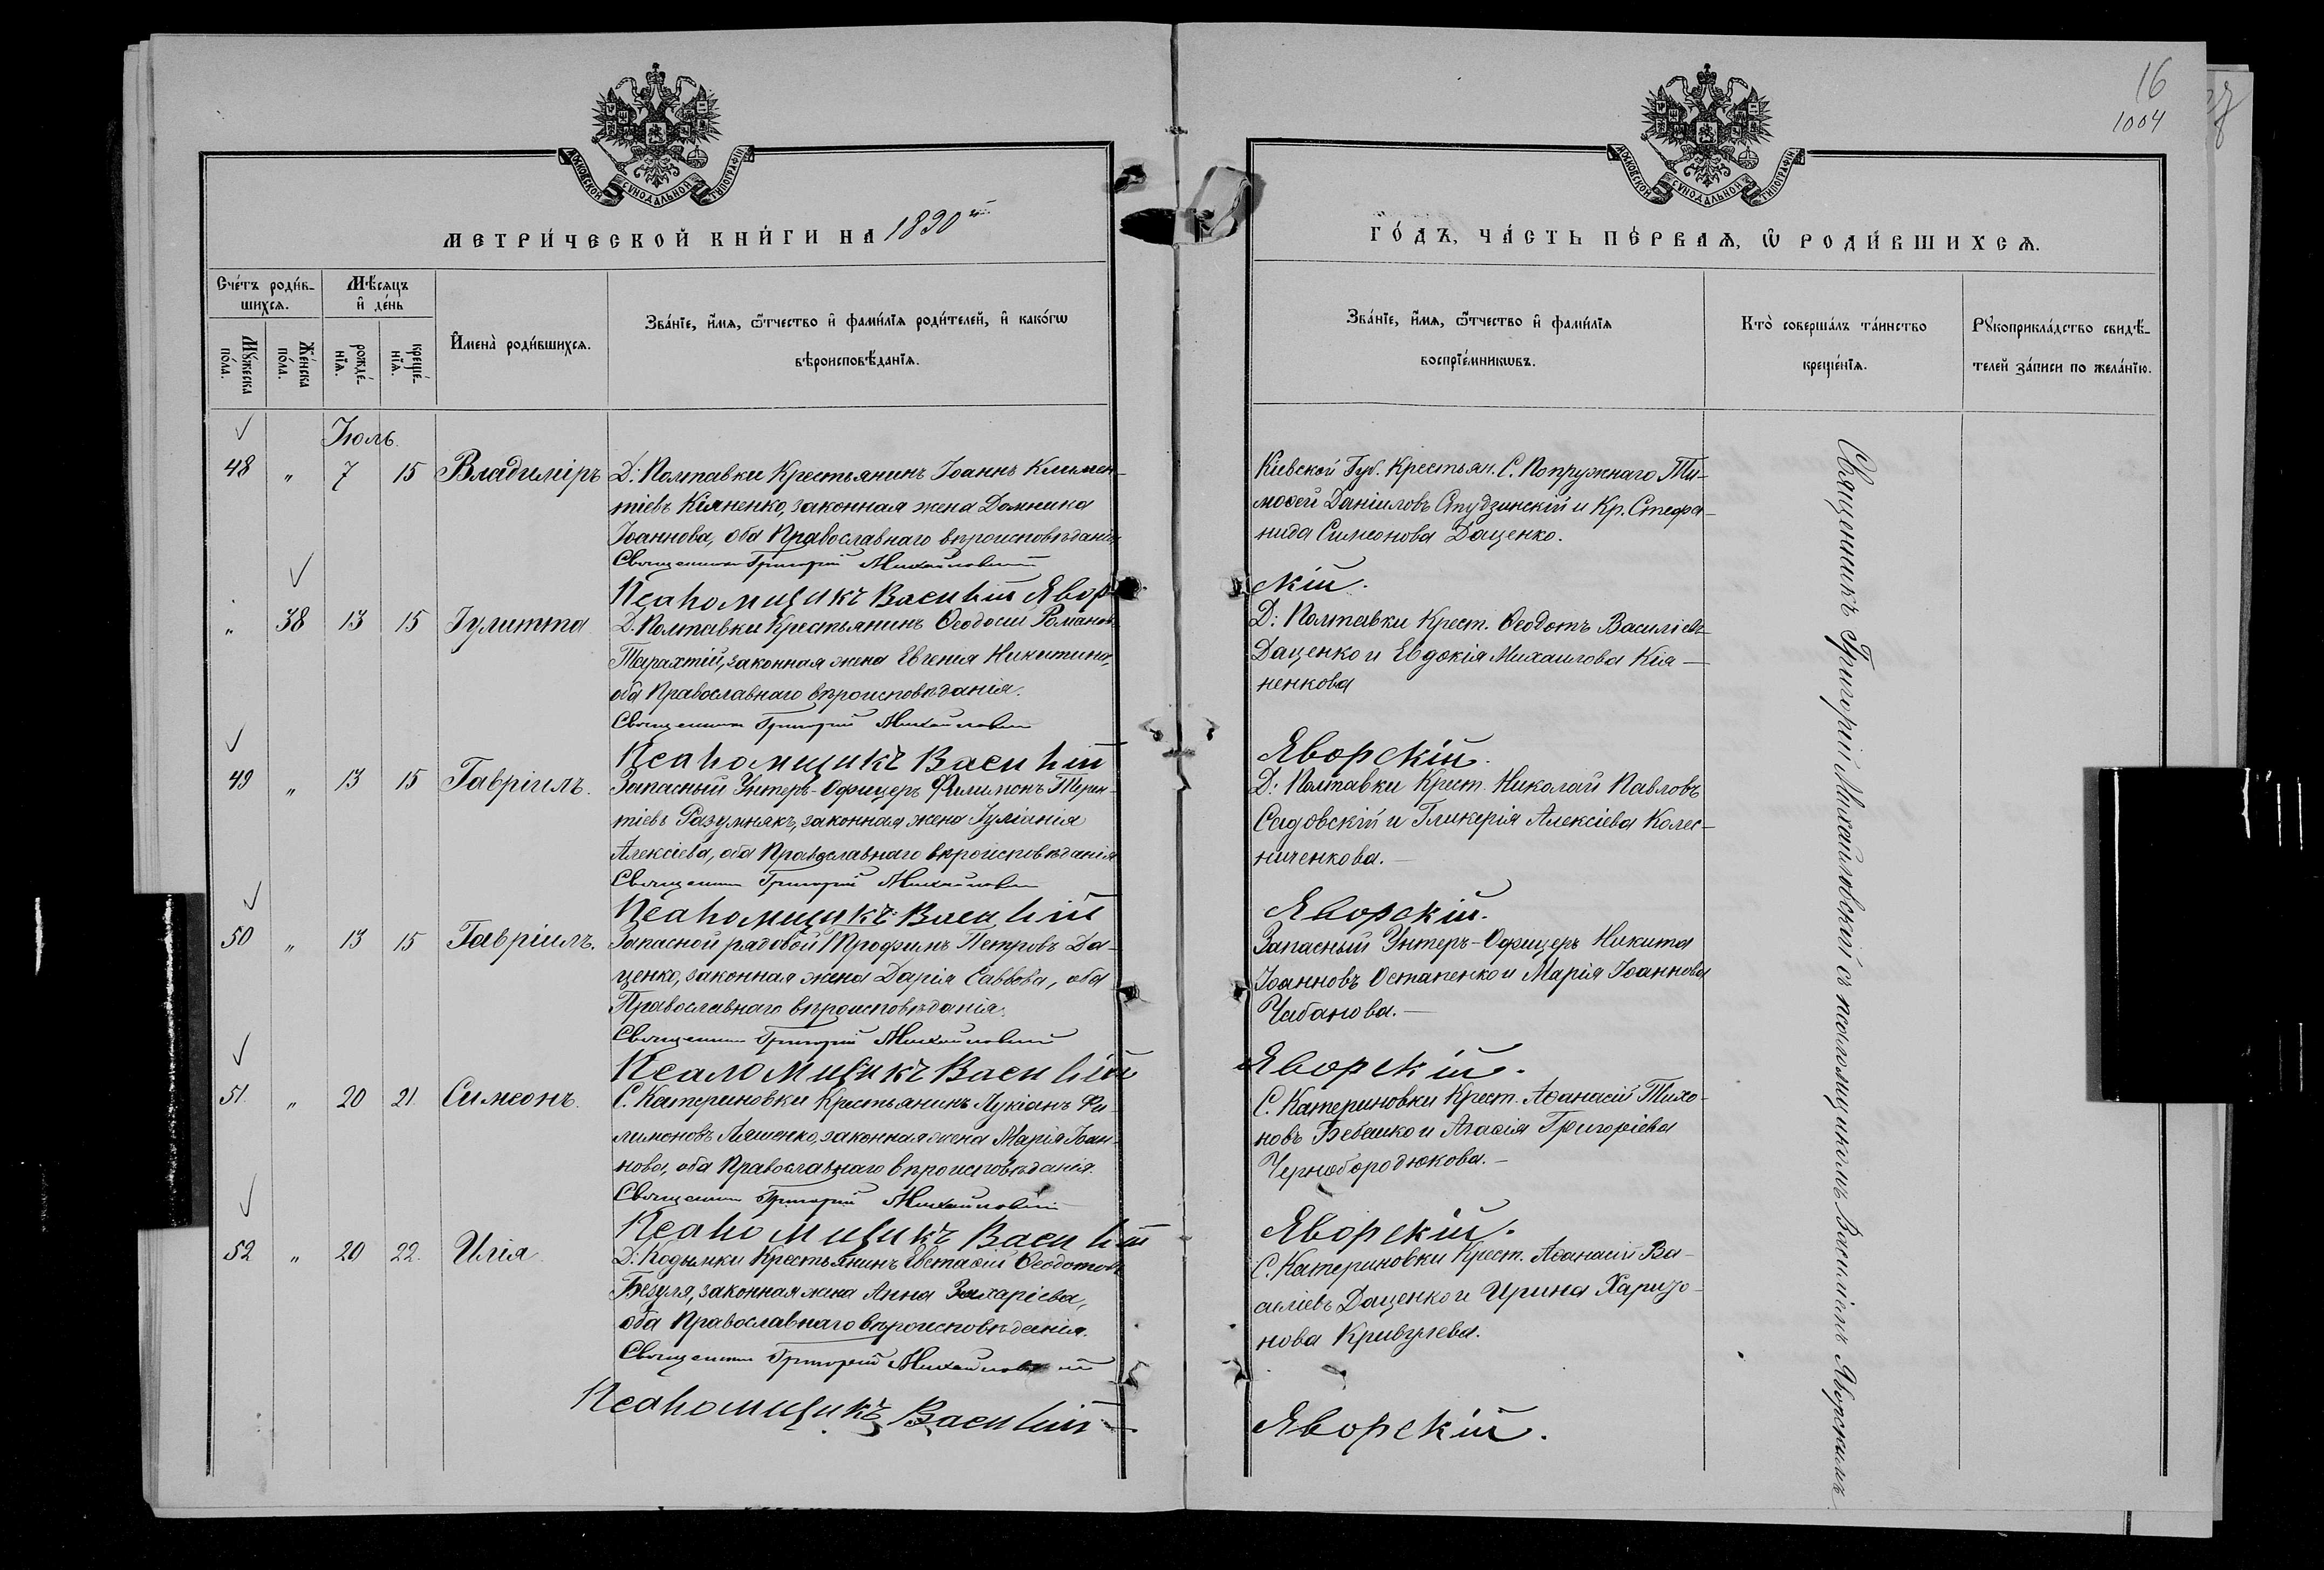 16
1004
МОСКОВСКОЙ СѴНОДАЛЬНОЙ ТИПОГРАФІИ
МОСКОВСКОЙ СѴНОДАЛЬНОЙ ТИПОГРАФІИ
МЕТРИ́ЧЕСКОЙ КНИ́ГИ НА 1890й
ГО́ДЪ, ЧА́СТЬ ПЕ́РВАѦ, Ѡ҆ РОДИ́ВШИХСѦ.
Счéтъ роди́в-
шихсѧ.
Мꙋ́жеска
по́ла.
Же́нска
по́ла.
Мѣ́сѧцъ
и҆ де́нь
рожде́-
нїѧ.
креще́-
нїѧ.
И҆мена̀ роди́вшихсѧ.
Зва́нїе, и҆́мѧ, ѻ҆́тчество и҆ фами́лїѧ роди́телей, и҆ како́гѡ
вѣроисповѣ́данїѧ.
Зва́нїе, и҆́мѧ, ѻ҆́тчество и҆ фами́лїѧ
воспрїе́мникѡвъ.
Кто̀ соверша́лъ та́инство
креще́нїѧ.
Рꙋкоприкла́дство свидѣ́-
телей за́писи по жела́нїю.
Іюль.
48 " 7 15 Владиміръ
Д: Полтавки Крестьянинъ Іоаннъ Климен-
тіевъ Кіяненко, законная жена Домника
Іоаннова, оба Православнаго вѣроисповѣданія
Священникъ Григорій Михайловскій
Псаломщикъ Василій Явор-
Кіевской Губ. Крестьян. С. Попружнаго Ти-
моѳей Даніиловъ Студзинскій и Кр. Стефа-
нида Симеонова Даценко.
скій.
" 38 13 15 Іулитта
Д. Полтавки Крестьянинъ Ѳеодосій Романовъ
Тарахтій, законная жена Евгенія Никитина,
оба Православнаго вѣроисповѣданія.
Священникъ Григорій Михайловскій
Псаломщикъ Василій
Д: Полтавки Крест. Ѳеодотъ Василіевъ
Даценко и Евдокія Михаилова Кія-
ненкова
Яворскій.
49 " 13 15 Гавріилъ.
Запасный Унтеръ-Офицеръ Филимонъ Терен-
тіевъ Разумнякъ, законная жена Іуліанія
Алексіева, оба Православнаго вѣроисповѣданія
Священникъ Григорій Михайловскій
Псаломщикъ Василій
Д: Полтавки Крест. Николай Павловъ
Садовскій и Гликерія Алексіева Колес-
ниченкова.
Яворскій.
50 " 13 15 Гавріилъ.
Запасной рядовой Трофимъ Петровъ Да-
ценко, законная жена Дарія Саввова, оба
Православнаго вѣроисповѣданія.
Священникъ Григорій Михайловскій
Псаломщикъ Василій
Запасный Унтеръ-Офицеръ Никита
Іоанновъ Остапенко и Марія Іоаннова
Чабанова.
Яворскій.
51. " 20 21 Симеонъ.
С. Катериновки Крестьянинъ Лукіанъ Фи-
лимоновъ Ляшенко, законная жена Марія Іоан-
нова, оба Православнаго вѣроисповѣданія.
Священникъ Григорій Михайловскій
Псаломщикъ Василій
С. Катериновки Крест. Аѳанасій Тихо-
новъ Бебешко и Агаѳія Григоріева
Чернобородюкова.
Яворскій.
52 " 20 22. Илія
Д: Подымки Крестьянинъ Евстаѳій Ѳеодотовъ
Безуля, законная жена Анна Захаріева,
оба Православнаго вѣроисповѣданія.
Священникъ Григорій Михайловскій
Псаломщикъ Василій
С. Катериновки Крест. Аѳанасій Ва-
силіевъ Даценко и Ирина Харито-
нова Кривулева.
Яворскій.
Священникъ Григорій Михайловскій съ псаломщикомъ Василіемъ Яворскимъ